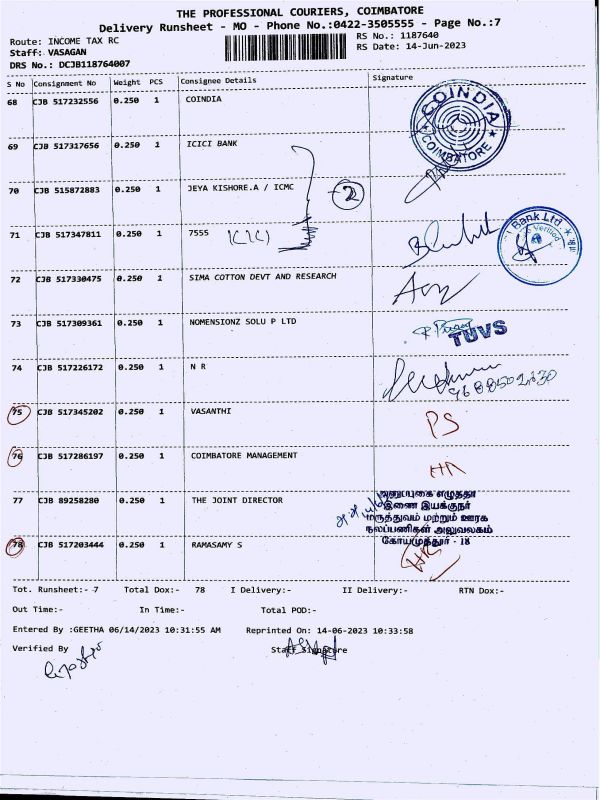 THE PROFESSIONAL COURIERS, COIMBATORE
Delivery Runsheet - MO - Phone No.:0422-3505555 - Page No.:7
Route: INCOME TAX RC RS No.: 1187640
Staff: VASAGAN RS Date: 14-Jun-2023
DRS No.: DCJB118764007
S No Consignment No Weight PCS Consignee Details Signature
68 CJB 517232556 0.250 1 COINDIA
COINDIA
COIMBATORE
69 CJB 517317656 0.250 1 ICICI BANK
70 CJB 515872883 0.250 1 JEYA KISHORE.A / ICMC 2
71 CJB 517347811 0.250 1 7555 ICICI
Bank Ltd.
72 CJB 517330475 0.250 1 SIMA COTTON DEVT AND RESEARCH
73 CJB 517309361 0.250 1 NOMENSIONZ SOLU P LTD
TUVS
74 CJB 517226172 0.250 1 N R
75 CJB 517345202 0.250 1 VASANTHI PS
76 CJB 517286197 0.250 1 COIMBATORE MANAGEMENT
77 CJB 89258280 0.250 1 THE JOINT DIRECTOR
இணை இயக்குநர்
மருத்துவம் மற்றும் ஊரக
நலப்பணிகள் அலுவலகம்
கோயமுத்தூர் - 18
78 CJB 517203444 0.250 1 RAMASAMY S
Tot. Runsheet:- 7 Total Dox:- 78 I Delivery:- II Delivery:- RTN Dox:-
Out Time:- In Time:- Total POD:-
Entered By :GEETHA 06/14/2023 10:31:55 AM Reprinted On: 14-06-2023 10:33:58
Verified By Staff Signature